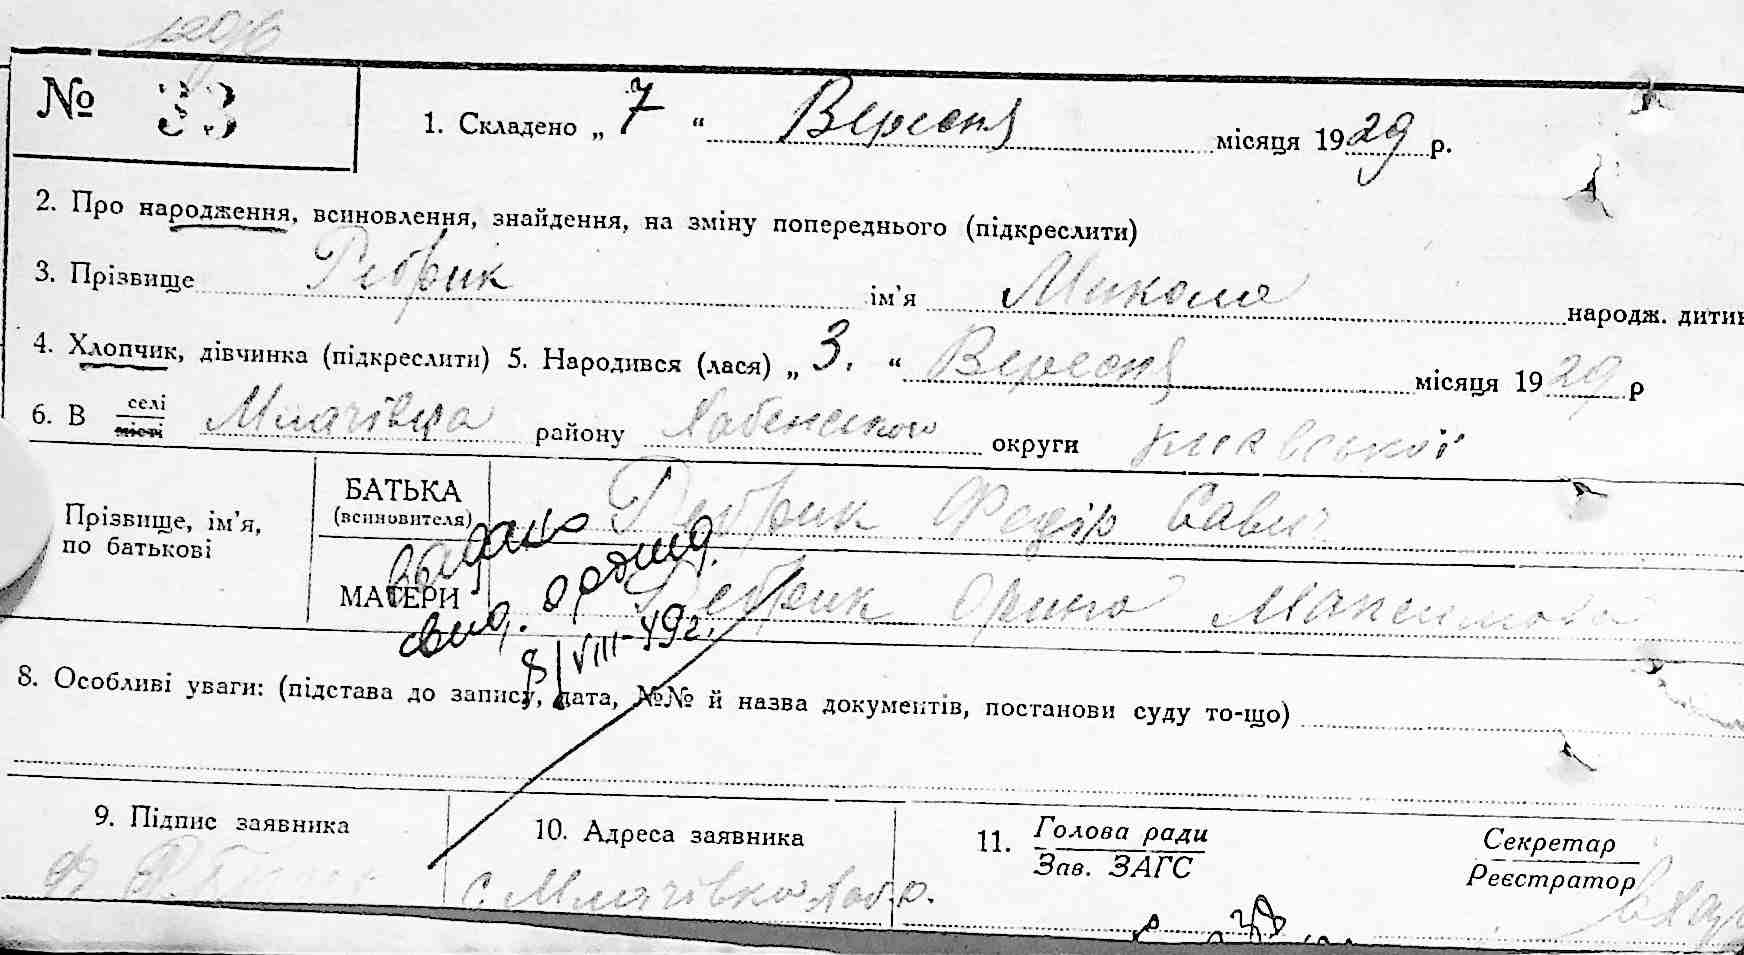 № 33
1. Складено „ 7 “ Вересня місяця 1929 р.
2. Про народження, всиновлення, знайдення, на зміну попереднього (підкреслити)
3. Прізвище Ребрик ім'я Микола народж. дитин
4. Хлопчик, дівчинка (підкреслити) 5. Народився (лася) „ 3. “ Вересня місяця 1929 р
6. В селі місті Млачівка району Хабенського округи Київської
Прізвище, ім'я, по батькові
БАТЬКА (всиновителя) Ребрик Федір Савич
МАТЕРИ Ребрик Орина Максимовна
видано
свид. о рожд.
8/VIII-49г.
8. Особливі уваги: (підстава до запису, дата, №№ й назва документів, постанови суду то-що)
9. Підпис заявника 10. Адреса заявника 11. Голова ради Зав. ЗАГС Секретар Реєстратор
с. Млачівка Хаб. р.